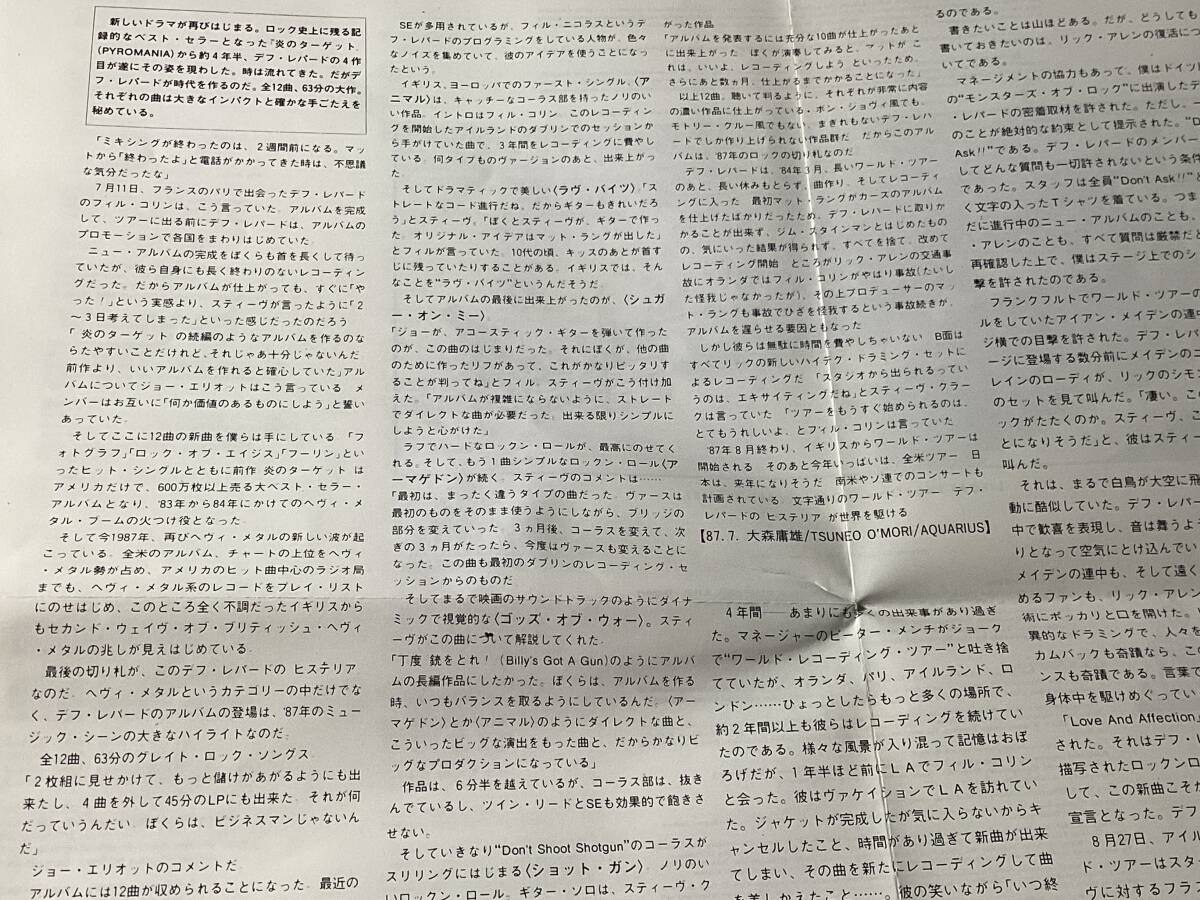 新しいドラマが再びはじまる。ロック史上に残る記
録的なベスト・セラーとなった『炎のターゲット』
(PYROMANIA)から約4年半、デフ・レパードの4作
目が遂にその姿を現わした。時は流れてきた。だがデ
フ・レパードが時代を作るのだ。全12曲、63分の大作。
それぞれの曲は大きなインパクトと確かな手ごたえを
秘めている。
「ミキシングが終わったのは、2週間前になる。マッ
トから「終わったよ」と電話がかかってきた時は、不思議
な気分だったな」
7月11日、フランスのパリで出会ったデフ・レパード
のフィル・コリンは、こう言っていた。アルバムを完成
して、ツアーに出る前にデフ・レパードは、アルバムの
プロモーションで各国をまわりはじめていた。
ニュー・アルバムの完成をぼくらも首を長くして待っ
ていたが、彼ら自身にも長く終わりのないレコーディン
グだった。だからアルバムが仕上がっても、すぐに「や
った!」という実感より、スティーヴが言ったように「2
〜3日考えてしまった」といった感じだったのだろう
「炎のターゲット の続編のようなアルバムを作るのな
らたやすいことだけれど、それじゃあ十分じゃないんだ
前作より、いいアルバムを作れると確心していた」アル
バムについてジョー・エリオットはこう言っている メ
ンバーはお互いに「何か価値のあるものにしよう」と誓い
あっていた。
そしてここに12曲の新曲を僕らは手にしている 「フ
ォトグラフ」「ロック・オブ・エイジス」「フーリン」とい
ったヒット・シングルとともに前作 炎のターゲット は
アメリカだけで、600万枚以上売る大ベスト・セラー・
アルバムとなり、'83年から84年にかけてのヘヴィ・メ
タル・ブームの火つけ役となった
そして今1987年、再びヘヴィ・メタルの新しい波が起
こっている 全米のアルバム、チャートの上位をヘヴィ
・メタル勢が占め、アメリカのヒット曲中心のラジオ局
までも、ヘヴィ・メタル系のレコードをプレイ・リスト
にのせはじめ、このところ全く不調だったイギリスから
もセカンド・ウェイヴ・オブ・ブリティッシュ・ヘヴィ
・メタルの兆しが見えはじめている
最後の切り札が、このデフ・レパードの ヒステリア
なのだ ヘヴィ・メタルというカテゴリーの中だけでな
く、デフ・レパードのアルバムの登場は、'87年のミュー
ジック・シーンの大きなハイライトなのだ
全12曲、63分のグレイト・ロック・ソングス
「2枚組に見せかけて、もっと儲けがあがるようにも出
来たし、4曲を外して45分のLPにも出来た それが何
だっていうんだい ぼくらは、ビジネスマンじゃないん
だ」
ジョー・エリオットのコメントだ
アルバムには12曲が収められることになった 最近の
SEが多用されているが、フィル・ニコラスというデ
フ・レパードのプログラミングをしている人物が、色々
なノイズを集めていて、彼のアイデアを使うことになっ
たという。
イギリス、ヨーロッパでのファースト・シングル、〈ア
ニマル〉は、キャッチーなコーラス部を持ったノリのい
い作品 イントロはフィル・コリン このレコーディン
グを開始したアイルランドのダブリンでのセッションか
ら手がけていた曲で、3年間をレコーディングに費やし
ている 何タイプものヴァージョンのあと、出来上がっ
た
そしてドラマティックで美しい〈ラヴ・バイツ〉「ス
トレートなコード進行だね だからギターもきれいだろ
う」とスティーヴ。「ぼくとスティーヴが、ギターで作っ
た オリジナル・アイデアはマット・ラングが出した」
とフィルが言っていた 10代の頃、キッスのあとが首す
じに残っていたりすることがある。イギリスでは、そん
なことを"ラヴ・バイツ"というんだそうだ
そしてアルバムの最後に出来上がったのが、〈シュガ
ー・オン・ミー〉
「ジョーが、アコースティック・ギターを弾いて作った
のが、この曲のはじまりだった。それにぼくが、他の曲
のために作ったリフがあって、これがかなりピッタリす
ることが判ってね」とフィル スティーヴがこう付け加
えた。「アルバムが複雑にならないように、ストレート
でダイレクトな曲が必要だった。出来る限りシンプルに
しようと心がけた」
ラフでハードなロックン・ロールが、最高にのせてく
れる。そして、もう1曲シンプルなロックン・ロール〈ア
ーマゲドン〉が続く。スティーヴのコメントは……
「最初は、まったく違うタイプの曲だった。ヴァースは
最初のものをそのまま使うようにしながら、ブリッジの
部分を変えていった。3ヵ月後、コーラスを変えて、次
ぎの3ヵ月がたったら、今度はヴァースも変えることに
なった。この曲も最初のダブリンのレコーディング・セ
ッションからのものだ
そしてまるで映画のサウンドトラックのようにダイナ
ミックで視覚的な〈ゴッズ・オブ・ウォー〉。スティ
ーヴがこの曲について解説してくれた。
「丁度 銃をとれ!(Billy's Got A Gun)のようにアルバ
ムの長編作品にしたかった。ぼくらは、アルバムを作る
時、いつもバランスを取るようにしているんだ。〈アー
マゲドン〉とか〈アニマル〉のようにダイレクトな曲と、
こういったビッグな演出をもった曲と、だからかなりビ
ッグなプロダクションになっている」
作品は、6分半を越えているが、コーラス部は、抜き
んでているし、ツイン・リードとSEも効果的で飽きさ
せない。
そしていきなり"Don't Shoot Shotgun"のコーラスが
スリリングにはじまる〈ショット・ガン〉。ノリのい
いロックン・ロール。ギター・ソロは、スティーヴ・ク
がった作品
「アルバムを発表するには充分な10曲が仕上がったあと
に出来上がった ぼくが演奏してみると、マットが こ
れは、いいよ、レコーディングしよう といったため、
さらにあと数ヵ月、仕上がるまでかかることになった」
以上12曲。聴いて判るように、それぞれが非常に内容
の濃い作品に仕上がっている。ボン・ジョヴィ風でも、
モトリー・クルー風でもない、まぎれもないデフ・レパ
ードでしか作り上げられない作品群だ だからこのアル
バムは、'87年のロックの切り札なのだ
デフ・レパードは、'84年3月、長いワールド・ツアー
のあと、長い休みもとらず、曲作り、そしてレコーディ
ングに入った 最初マット・ラングがカーズのアルバム
を仕上げたばかりだったため、デフ・レパードに取りか
かることが出来ず、ジム・スタインマンとはじめたもの
の、気にいった結果が得られず、すべてを捨て、改めて
レコーディング開始 ところがリック・アレンの交通事
故にオランダではフィル・コリンがやはり事故(たいし
た怪我じゃなかったが)、その上プロデューサーのマッ
ト・ラングも事故でひざを怪我するという事故続きが、
アルバムを遅らせる要因ともなった
しかし彼らは無駄に時間を費やしちゃいない B面は
すべてリックの新しいハイテク・ドラミング・セットに
よるレコーディングだ 「スタジオから出られるってい
うのは、エキサイティングだね」とスティーヴ・クラー
クは言っていた 「ツアーをもうすぐ始められるのは、
とてもうれしいよ、とフィル・コリンは言っていた
'87年8月終わり、イギリスからワールド・ツアーは
開始される そのあと今年いっぱいは、全米ツアー 日
本は、来年になりそうだ 南米やソ連でのコンサートも
計画されている 文字通りのワールド・ツアー デフ・
レパードの ヒステリア が世界を駆ける
【87.7. 大森庸雄/TSUNEO O'MORI/AQUARIUS】
4年間 あまりにも くの出来事があり過ぎ
た。マネージャーのピーター・メンチがジョーク
で"ワールド・レコーディング・ツアー"と吐き捨
てていたが、オランダ、パリ、アイルランド、ロ
ンドン……ひょっとしたらもっと多くの場所で、
約2年間以上も彼らはレコーディングを続けてい
たのである。様々な風景が入り混って記憶はおぼ
ろげだが、1年半ほど前にLAでフィル・コリン
と会った。彼はヴァケイションでLAを訪れてい
た。ジャケットが完成したが気に入らないからキ
ャンセルしたこと、時間があり過ぎて新曲が出来
てしまい、その曲を新たにレコーディングして曲
を差しかえたこと……。彼の笑いながら「いつ終
るのである。
書きたいことは山ほどある。だが、どうしても
書いておきたいのは、リック・アレンの復活につ
いてである。
マネージメントの協力もあって、僕はドイツ
の"モンスターズ・オブ・ロック"に出演したデ
・レパードの密着取材を許された。ただし、
のことが絶対的な約束として提示された。"D
Ask!!"である。デフ・レパードのメンバー
してどんな質問も一切許されないという条件
であった。スタッフは全員"Don't Ask!!"と
く文字の入ったTシャツを着ている。つま
だに進行中のニュー・アルバムのことも、
・アレンのことも、すべて質問は厳禁だと
再確認した上で、僕はステージ上でのシ
撃を許されたのである。
フランクフルトでワールド・ツアーの
ルをしていたアイアン・メイデンの連中
ジ横での目撃を許された。デフ・レパ
ージに登場する数分前にメイデンのニコ
レインのローディが、リックのシモン
のセットを見て叫んだ。「凄い。この
ックがたたくのか。スティーヴ、こ
とになりそうだ」と、彼はスティー
叫んだ。
それは、まるで白鳥が大空に飛
動に酷似していた。デフ・レパ
中で歓喜を表現し、音は舞うよう
りとなって空気にとけ込んでい
メイデンの連中も、そして遠く
めるファンも、リック・アレン
術にポッカリと口を開けた。
異的なドラミングで、人々を
カムバックも奇蹟なら、この
ンスも奇蹟である。言葉で
身体中を駆けめぐってい
「Love And Affection」
された。それはデフ・レ
描写されたロックンロ
して、この新曲こそか
宣言となった。デフ
8月27日、アイル
ド・ツアーはスター
ヴに対するフラン